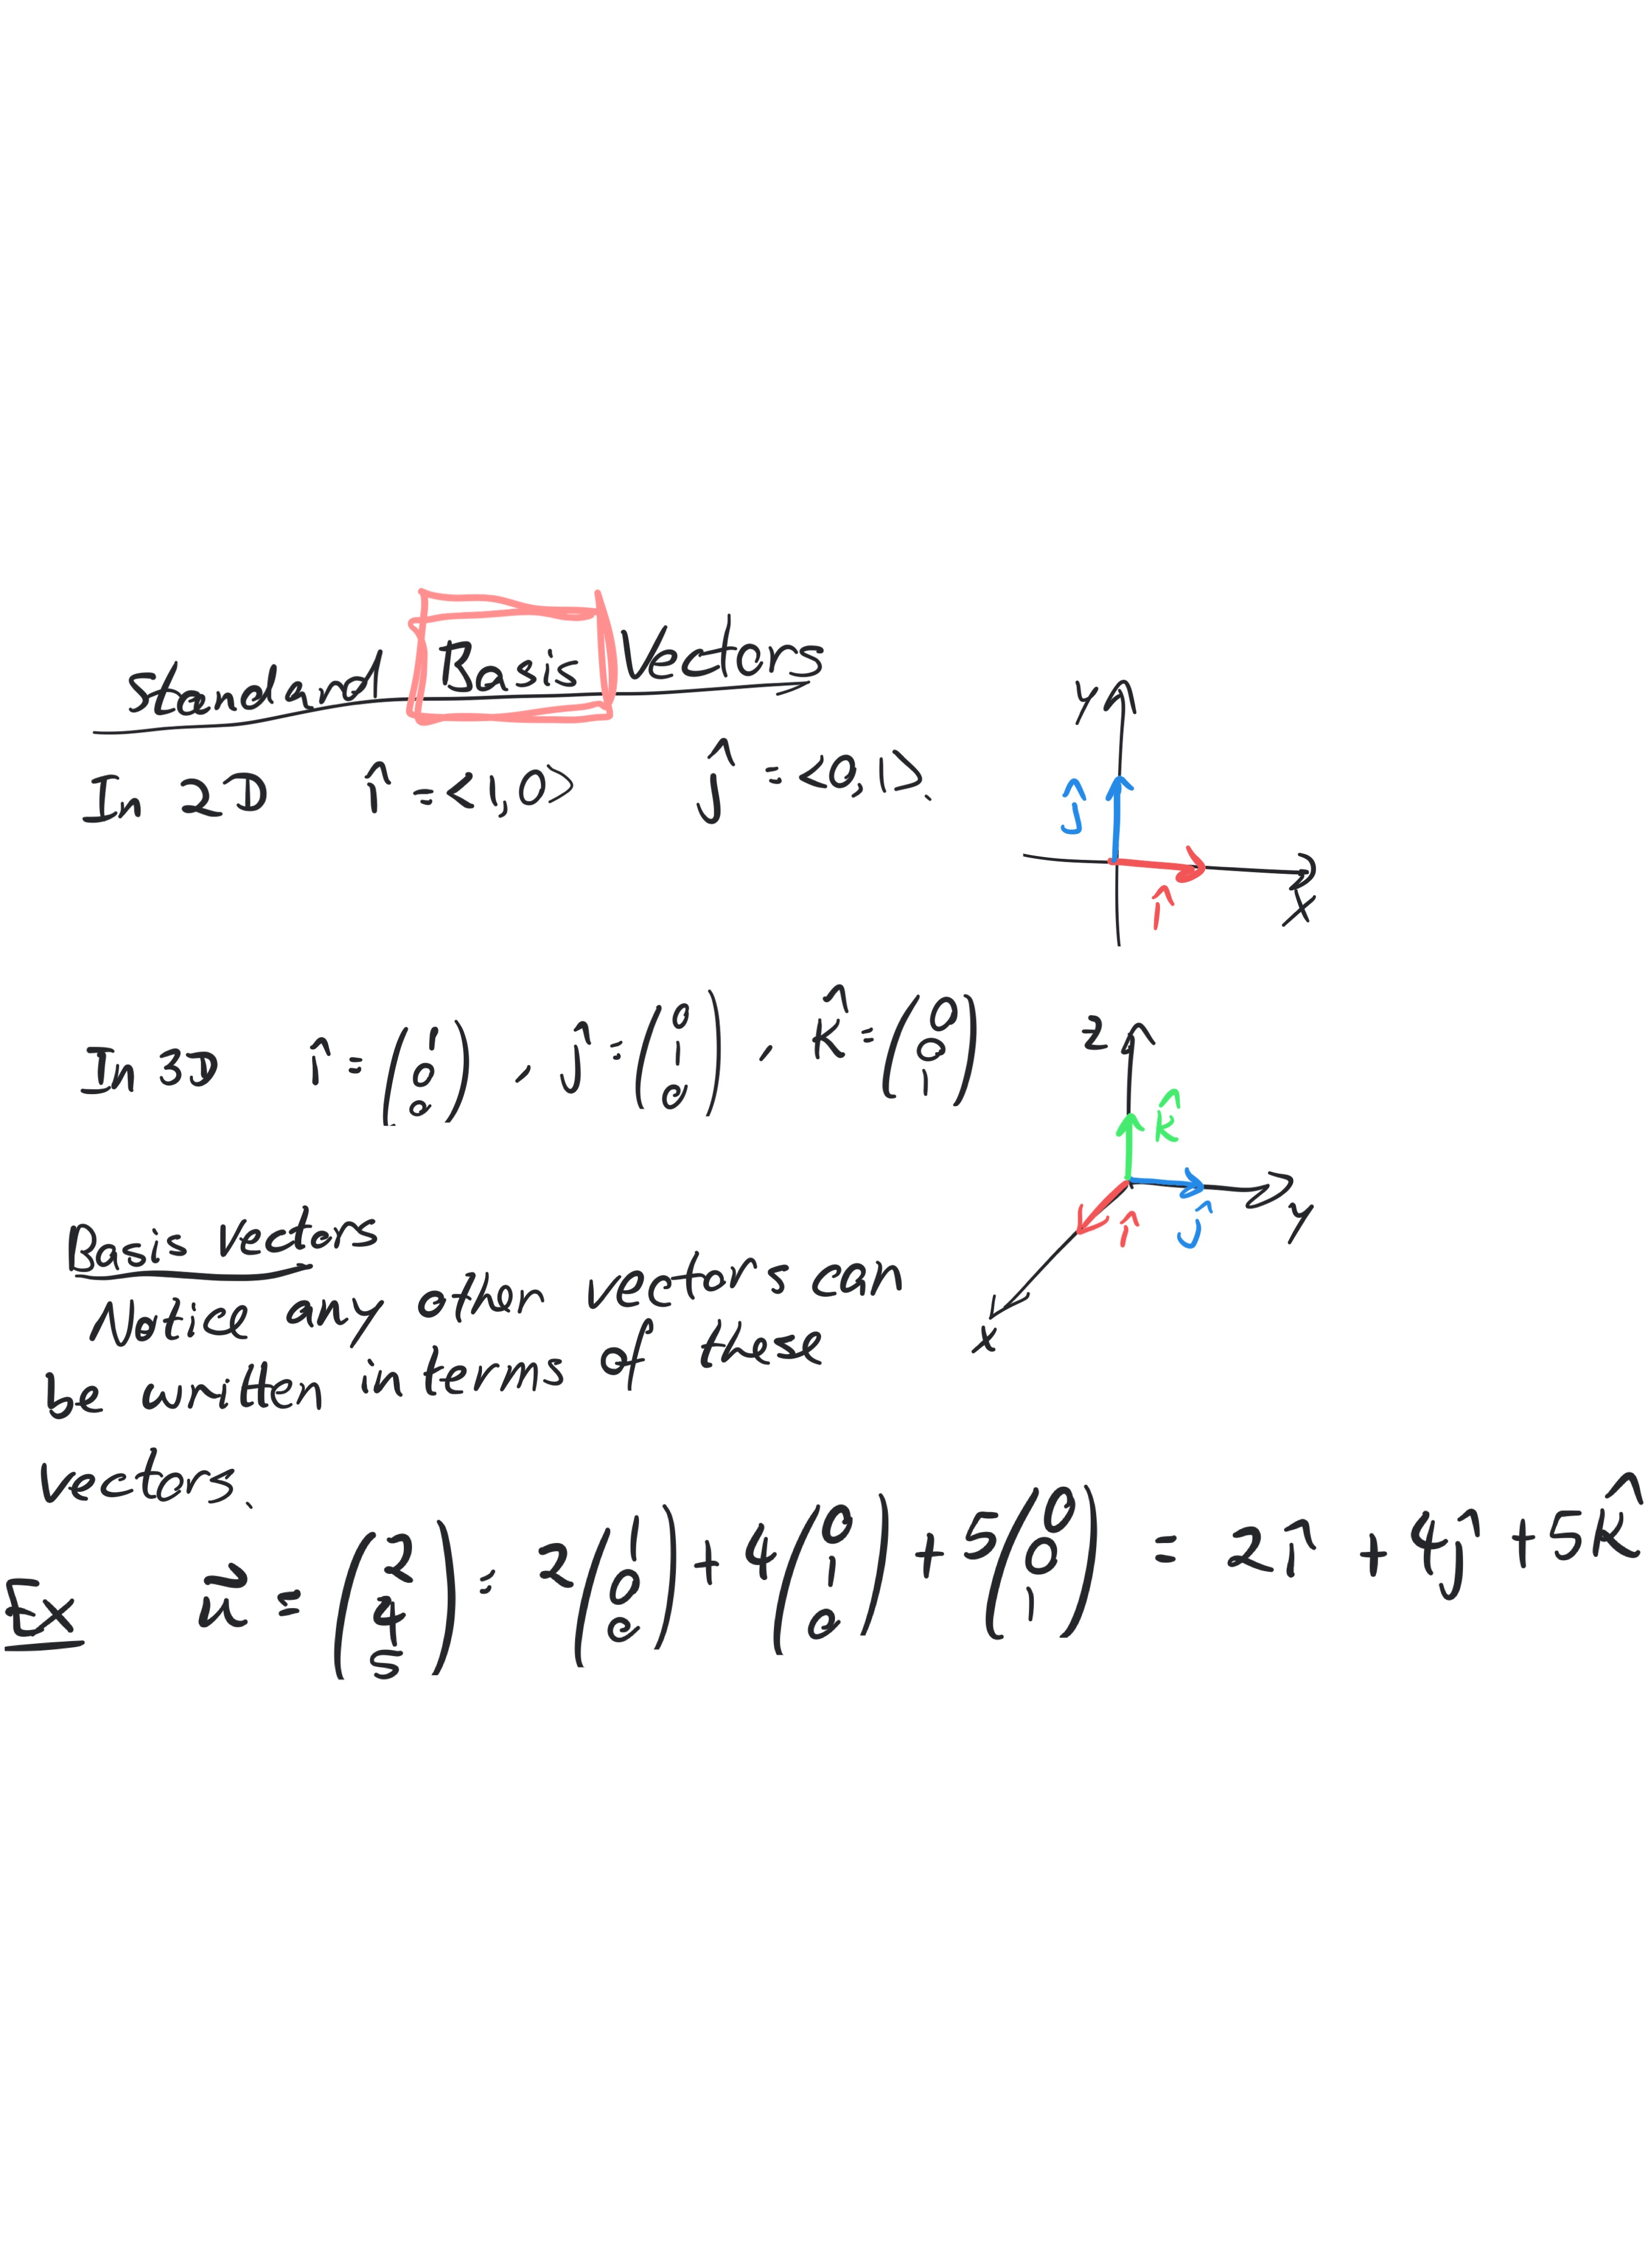 Standard Basis Vectors
In 2D î = <1, 0> ĵ = <0, 1>.
y
ĵ
î
x
In 3D î = (1 0 0), ĵ = (0 1 0), k̂ = (0 0 1)
z
k̂
î
ĵ
y
x
Basis vectors
Notice any other vectors can
be written in terms of these
vectors.
Ex u⃗ = (2 4 5) = 2(1 0 0) + 4(0 1 0) + 5(0 0 1) = 2î + 4ĵ + 5k̂